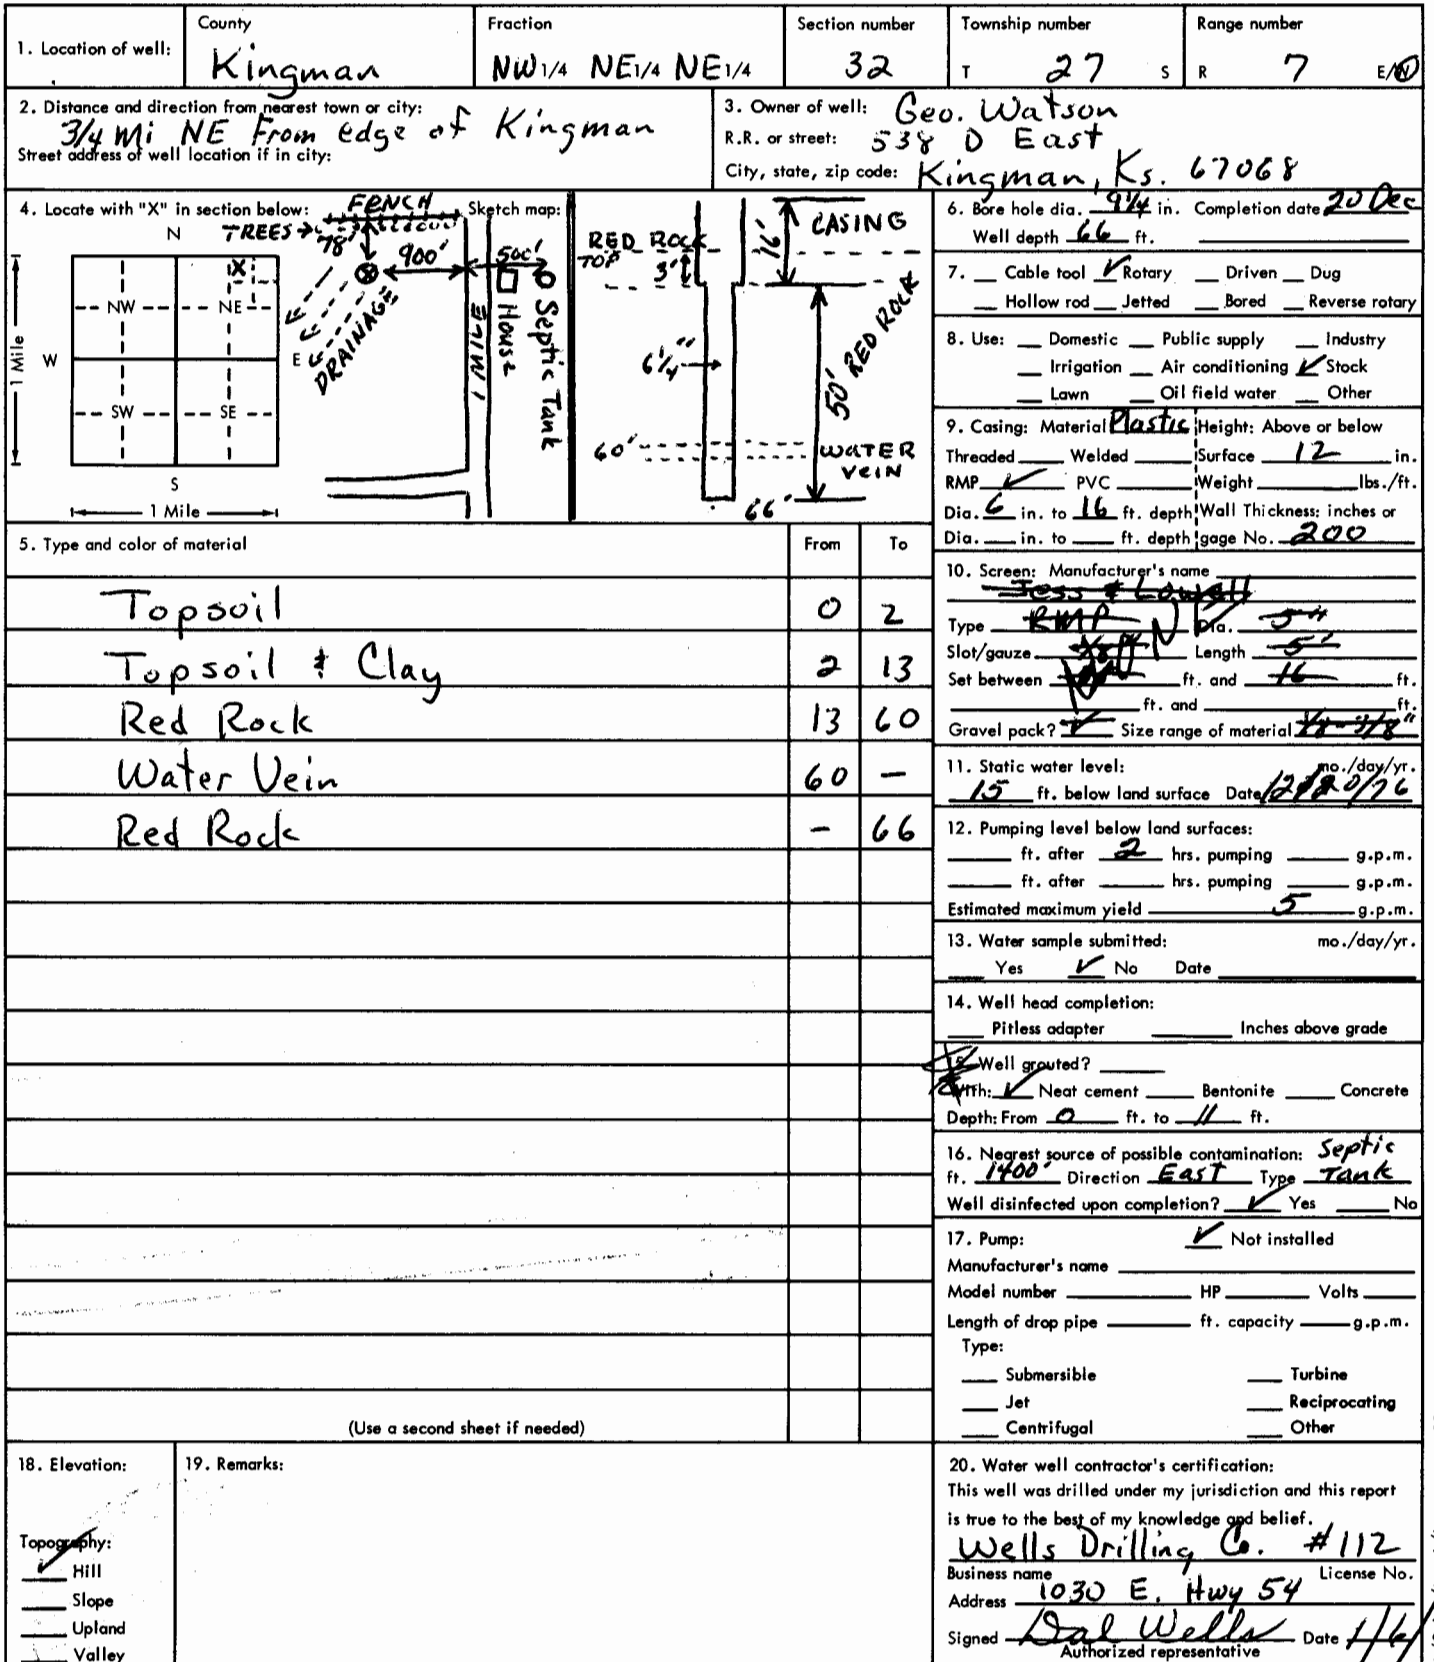 1. Location of well:
County
Kingman
Fraction
NW 1/4 NE 1/4 NE 1/4
Section number
32
Township number
T 27 S
Range number
R 7 E/W
2. Distance and direction from nearest town or city:
3/4 Mi NE From edge of Kingman
Street address of well location if in city:
3. Owner of well: Geo. Watson
R.R. or street: 538 D East
City, state, zip code: Kingman, Ks. 67068
4. Locate with "X" in section below:
N
NW NE
W E
SW SE
S
1 Mile
1 Mile
X
Sketch map:
FENCH
TREES
78'
900'
500'
DRAINAGE
1 MILE
House
Septic Tank
CASING
16'
RED ROCK
TOP
3'
6 1/4"
50' RED ROCK
60'
WATER
VEIN
66'
5. Type and color of material From To
Topsoil 0 2
Topsoil & Clay 2 13
Red Rock 13 60
Water Vein 60 -
Red Rock - 66
(Use a second sheet if needed)
6. Bore hole dia. 9 1/4 in. Completion date 20 Dec
Well depth 66 ft.
7. Cable tool ✓ Rotary Driven Dug
Hollow rod Jetted Bored Reverse rotary
8. Use: Domestic Public supply Industry
Irrigation Air conditioning ✓ Stock
Lawn Oil field water Other
9. Casing: Material Plastic Height: Above or below
Threaded Welded Surface 12 in.
RMP ✓ PVC Weight lbs./ft.
Dia. 6 in. to 16 ft. depth Wall Thickness: inches or
Dia. in. to ft. depth gage No. 200
10. Screen: Manufacturer's name
Jess & Lowell
Type RMP Dia. 5"
Slot/gauze Length 5'
Set between ft. and 16 ft.
ft. and ft.
Gravel pack? ✓ Size range of material 1/8-3/8"
11. Static water level: mo./day/yr.
15 ft. below land surface Date 12/20/76
12. Pumping level below land surfaces:
ft. after 2 hrs. pumping g.p.m.
ft. after hrs. pumping g.p.m.
Estimated maximum yield 5 g.p.m.
13. Water sample submitted: mo./day/yr.
Yes ✓ No Date
14. Well head completion:
Pitless adapter Inches above grade
15. Well grouted?
With: ✓ Neat cement Bentonite Concrete
Depth: From 0 ft. to 11 ft.
16. Nearest source of possible contamination: Septic
ft. 1400' Direction East Type Tank
Well disinfected upon completion? ✓ Yes No
17. Pump: ✓ Not installed
Manufacturer's name
Model number HP Volts
Length of drop pipe ft. capacity g.p.m.
Type:
Submersible Turbine
Jet Reciprocating
Centrifugal Other
18. Elevation:
Topography:
✓ Hill
Slope
Upland
Valley
19. Remarks:
20. Water well contractor's certification:
This well was drilled under my jurisdiction and this report
is true to the best of my knowledge and belief.
Wells Drilling Co. #112
Business name License No.
Address 1030 E. Hwy 54
Signed Dal Wells Date 1/6/
Authorized representative